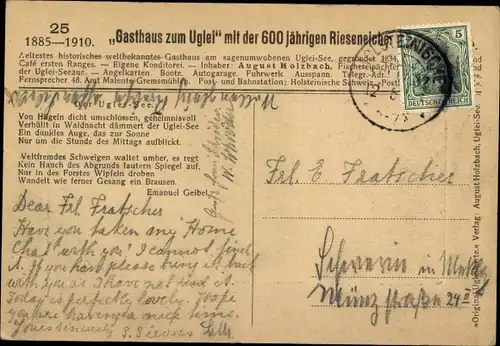 25
1885—1910.
„Gasthaus zum Uglei" mit der 600 jährigen Rieseneiche
Aeltestes historisches weltbekanntes Gasthaus am sagenumwobenen Uglei-See, gegründet 1834.
Café ersten Ranges — Eigene Konditorei. — Inhaber: August Holzbach, Fischereipächter
der Uglei-Seeaue. — Angelkarten. Boote. Autogarage. Fuhrwerk. Ausspann. Telegr.-Adr.:
Fernsprecher 48. Amt Malente-Gremsmühlen. Post- und Bahnstation: Holsteinische Schweiz.
HOLSTEINISCHE
5
DEUTSCHES REICH
Der Uglei-See.
Von Hügeln dicht umschlossen, geheimnisvoll
Verhüllt in Waldnacht dämmert der Uglei-See
Ein dunkles Auge, das zur Sonne
Nur um die Stunde des Mittags aufblickt.
Weltfremdes Schweigen waltet umher, es regt
Kein Hauch des Abgrunds lautern Spiegel auf.
Nur in des Forstes Wipfeln droben
Wandelt wie ferner Gesang ein Brausen.
Emanuel Geibel.
Dear Frl. Fratscher
Have you taken my Home
Chat with you? I cannot find
it. If you have please bring it back
with you as I have not read it.
Today is perfectly lovely. Hope
you are having a nice time.
Yours sincerely S. Sievers
Frl. E Fratscher
Schwerin in Meckl
Münzstraße 24 II
Verlag: August Holzbach, Uglei-See.